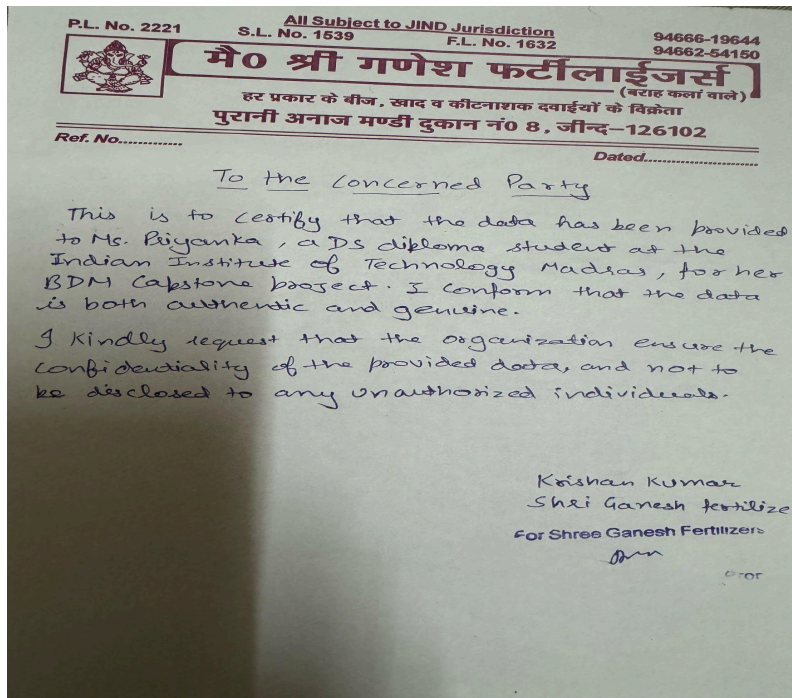 All Subject to JIND Jurisdiction
P.L. No. 2221
S.L. No. 1539
F.L. No. 1632
94666-19644
94662-54150
मै0 श्री गणेश फर्टीलाईजर्स
(बराह कलां वाले)
हर प्रकार के बीज, खाद व कीटनाशक दवाईयों के विक्रेता
पुरानी अनाज मण्डी दुकान नं0 8, जीन्द-126102
Ref. No.............
Dated.......................
To the Concerned Party
This is to certify that the data has been provided
to Ms. Priyanka, a DS diploma student at the
Indian Institute of Technology Madras, for her
BDM Capstone project. I conform that the data
is both authentic and genuine.
I Kindly request that the organization ensure the
confidentiality of the provided data, and not to
be disclosed to any unauthorized individuals.
Krishan Kumar
Shri Ganesh fertilize
For Shree Ganesh Fertilizers